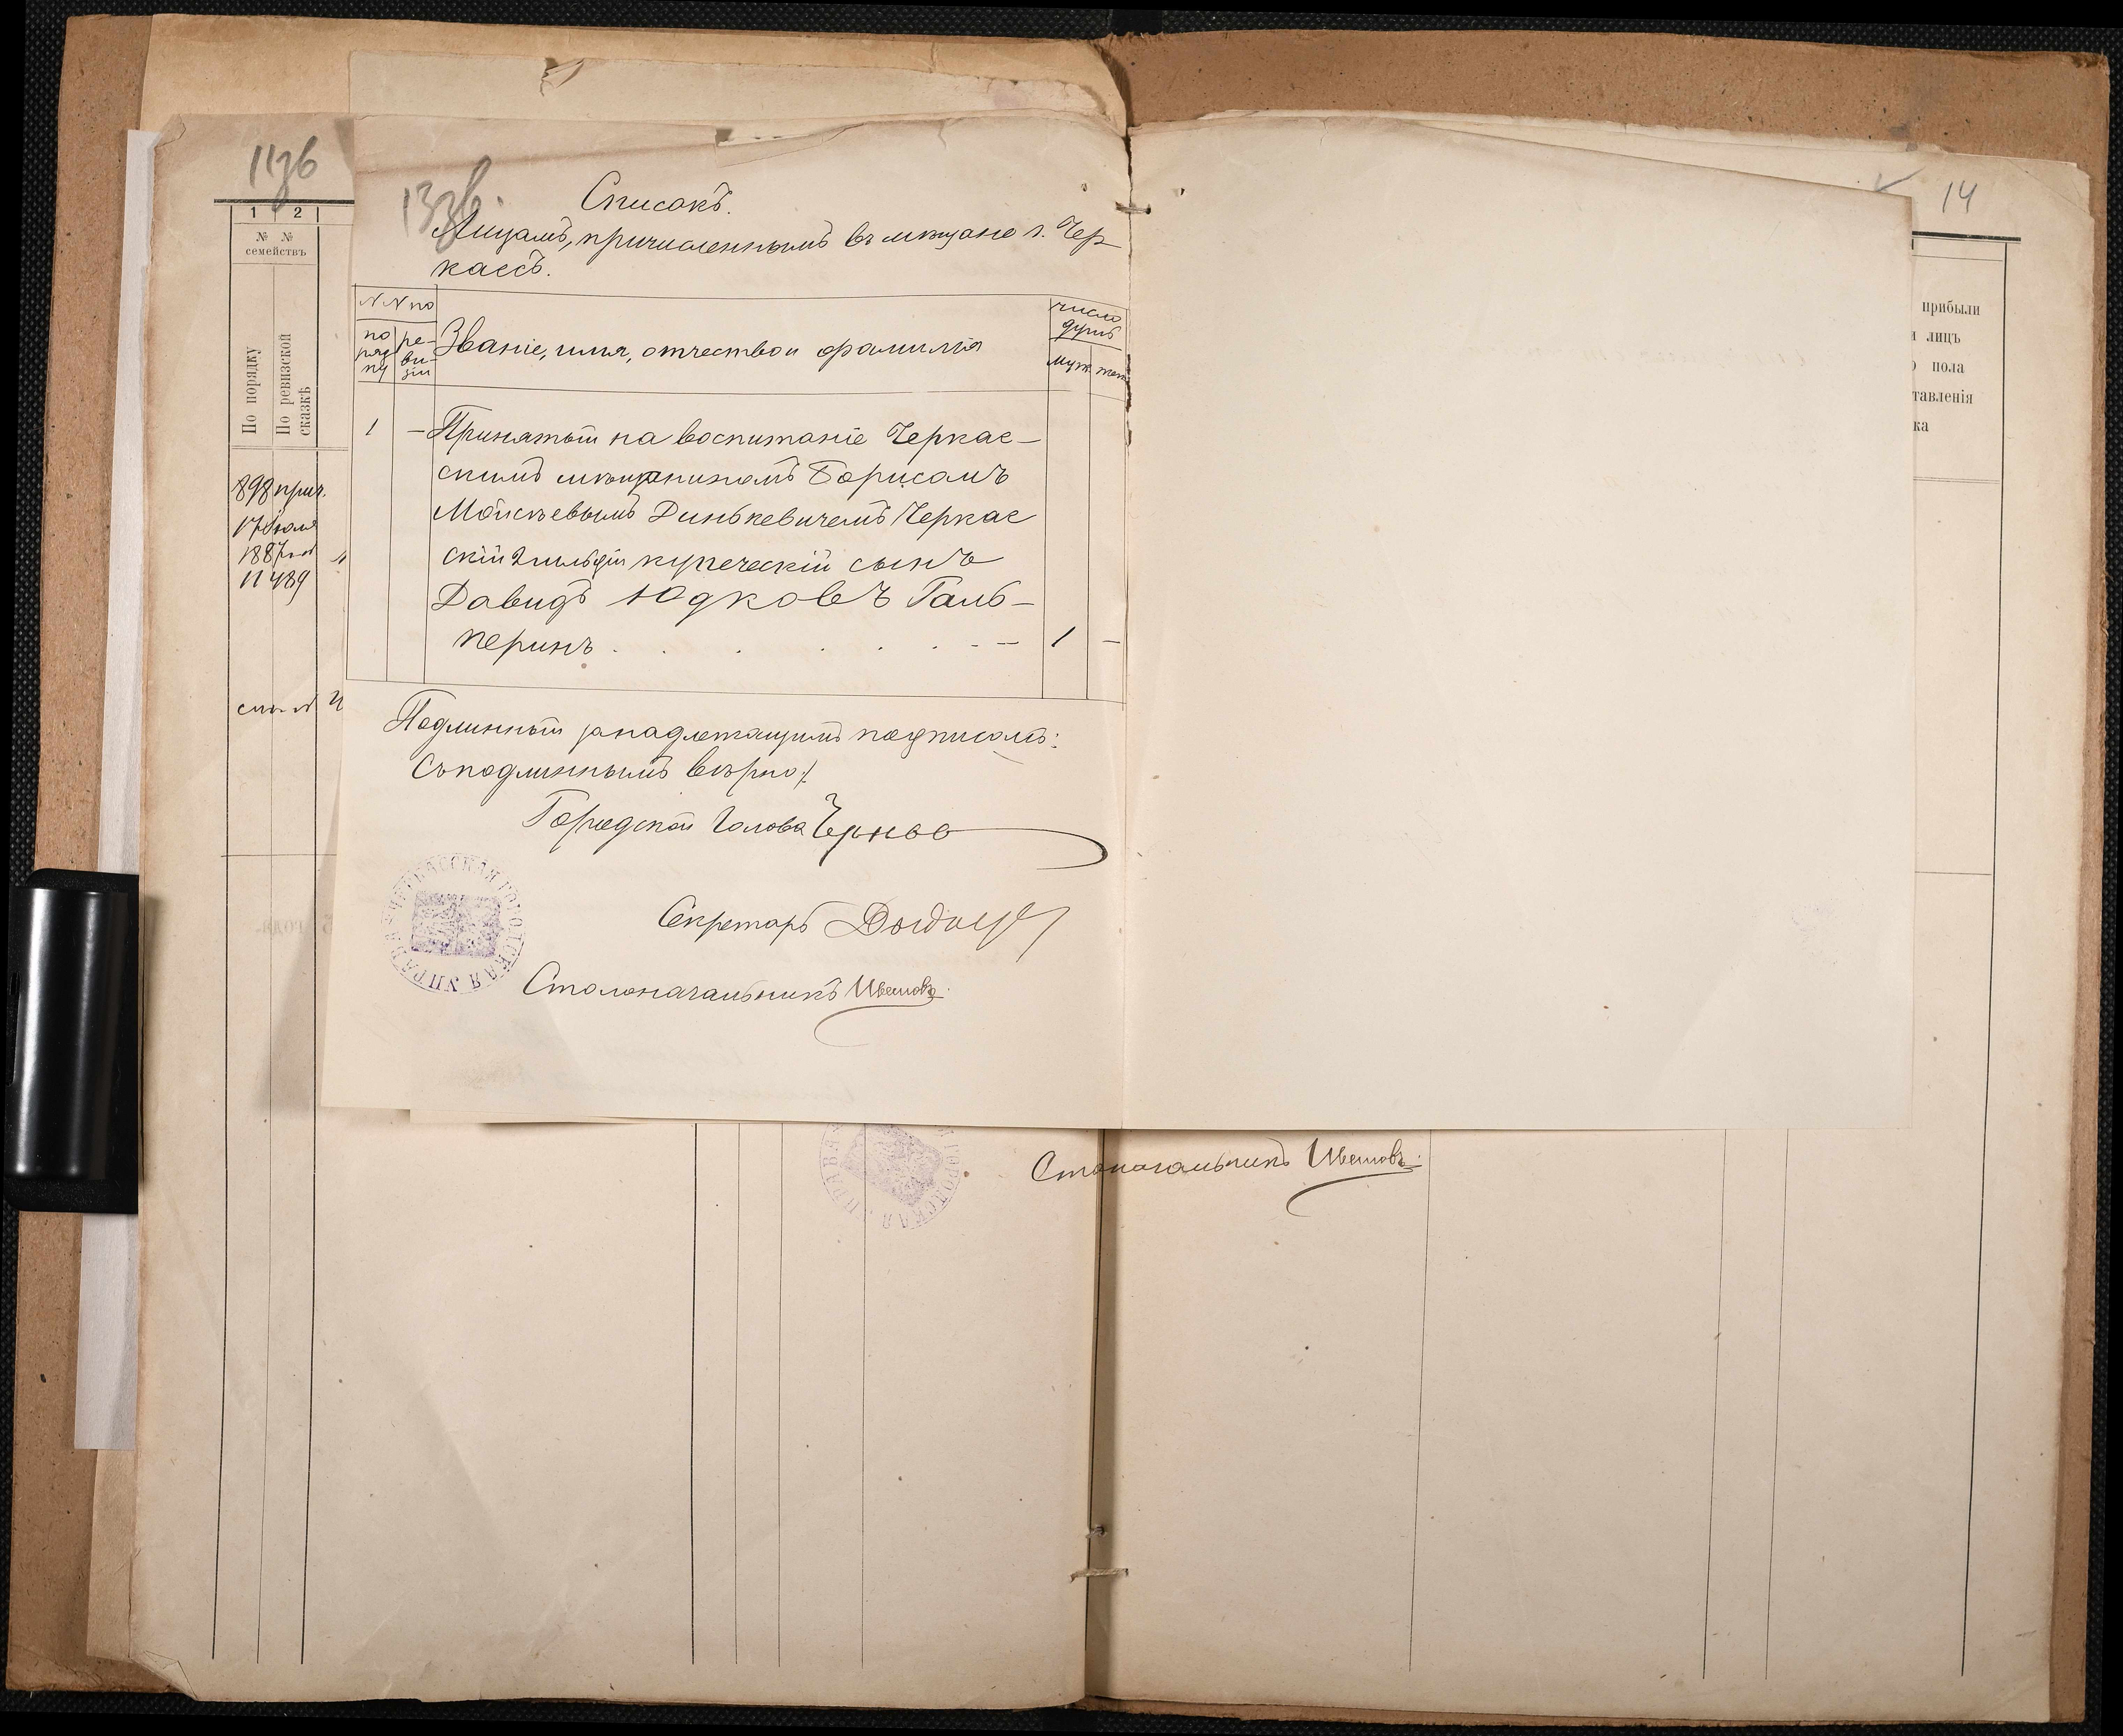 11зв
1 2
№ №
семействъ
По порядку
По ревизской
сказкѣ
898 прич.
17 Іюля
1887
N 489
13зв.
Списокъ.
Лицамъ, причисленнымъ въ мѣщане г. Чер
кассъ.
N N по
по
ряд
ку
ре-
ви-
зіи
Званіе, имя, отчество и фамилія
число
душъ
Муж. жен.
1 — Принятый на воспитаніе Черкас-
скимъ мѣщаниномъ Борисомъ
Мойсѣевымъ Динькевичемъ Черкас
скій 2 гильдіи купеческій сынъ
Давидъ Юдковъ Галь-
перинъ . . . . . . — 1 —
Подлинный за надлежащимъ подписомъ:
Съ подлиннымъ вѣрно:
Городской Голова
Секретарь
Столоначальникъ
ЧЕРКАССКАЯ ГОРОДСКАЯ УПРАВА
14
прибыли
лицъ
пола
тавленія
ка
ГОРОДСКАЯ УПРАВА
Столоначальникъ